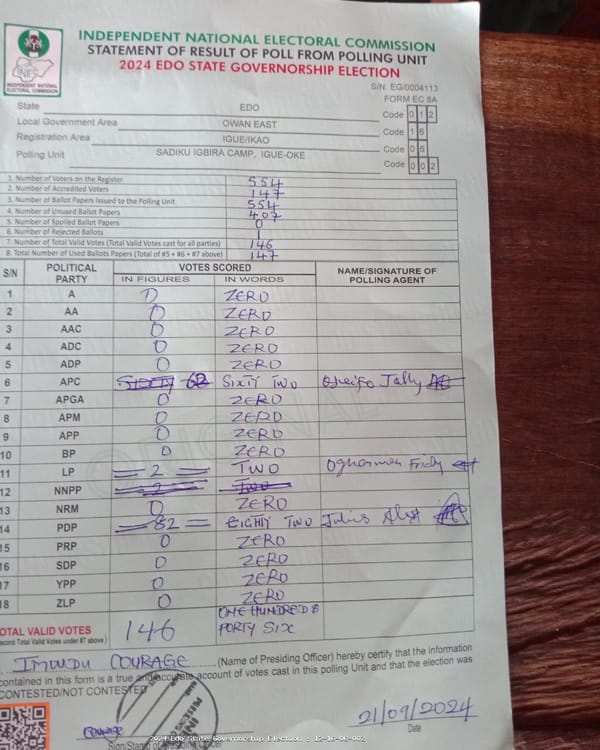 INDEPENDENT NATIONAL ELECTORAL COMMISSION
STATEMENT OF RESULT OF POLL FROM POLLING UNIT
2024 EDO STATE GOVERNORSHIP ELECTION
INEC
INDEPENDENT NATIONAL
ELECTORAL COMMISSION
S/N: EG/0004113
FORM EC 8A
State EDO Code 0 1 2
Local Government Area OWAN EAST Code 1 6
Registration Area IGUE/IKAO Code 0 6
Polling Unit SADIKU IGBIRA CAMP, IGUE-OKE Code 0 0 2
1. Number of Voters on the Register 554
2. Number of Accredited Voters 147
3. Number of Ballot Papers Issued to the Polling Unit 554
4. Number of Unused Ballot Papers 407
5. Number of Spoiled Ballot Papers 0
6. Number of Rejected Ballots 1
7. Number of Total Valid Votes (Total Valid Votes cast for all parties) 146
8. Total Number of Used Ballots Papers (Total of #5 + #6 + #7 above) 147
S/N POLITICAL PARTY VOTES SCORED NAME/SIGNATURE OF POLLING AGENT
IN FIGURES IN WORDS
1 A 0 ZERO
2 AA 0 ZERO
3 AAC 0 ZERO
4 ADC 0 ZERO
5 ADP 0 ZERO
6 APC 62 SIXTY TWO
7 APGA 0 ZERO
8 APM 0 ZERO
9 APP 0 ZERO
10 BP 0 ZERO
11 LP = 2 = TWO
12 NNPP
13 NRM 0 ZERO
14 PDP = 82 = EIGHTY TWO Julius
15 PRP 0 ZERO
16 SDP 0 ZERO
17 YPP 0 ZERO
18 ZLP 0 ZERO
TOTAL VALID VOTES 146 ONE HUNDRED &
FORTY SIX
Record Total Valid Votes under #7 above)
IMOUDU COURAGE (Name of Presiding Officer) hereby certify that the information
contained in this form is a true and accurate account of votes cast in this polling Unit and that the election was
CONTESTED/NOT CONTESTED
21/09/2024
Date
Sign/Stamp of Presiding Officer
2024 Edo State Governorship Election - 12-16-06-002